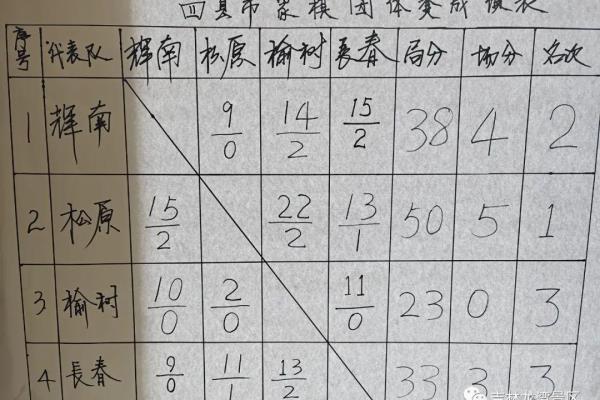 四县市象棋团体赛成绩表
序号 代表队 辉南 松原 榆树 長春 局分 场分 名次
1 辉南 9/0 14/2 15/2 38 4 2
2 松原 15/2 22/2 13/1 50 5 1
3 榆树 10/0 2/0 11/0 23 0 3
4 長春 9/0 11/1 13/2 33 3 3
吉林龙湾景区